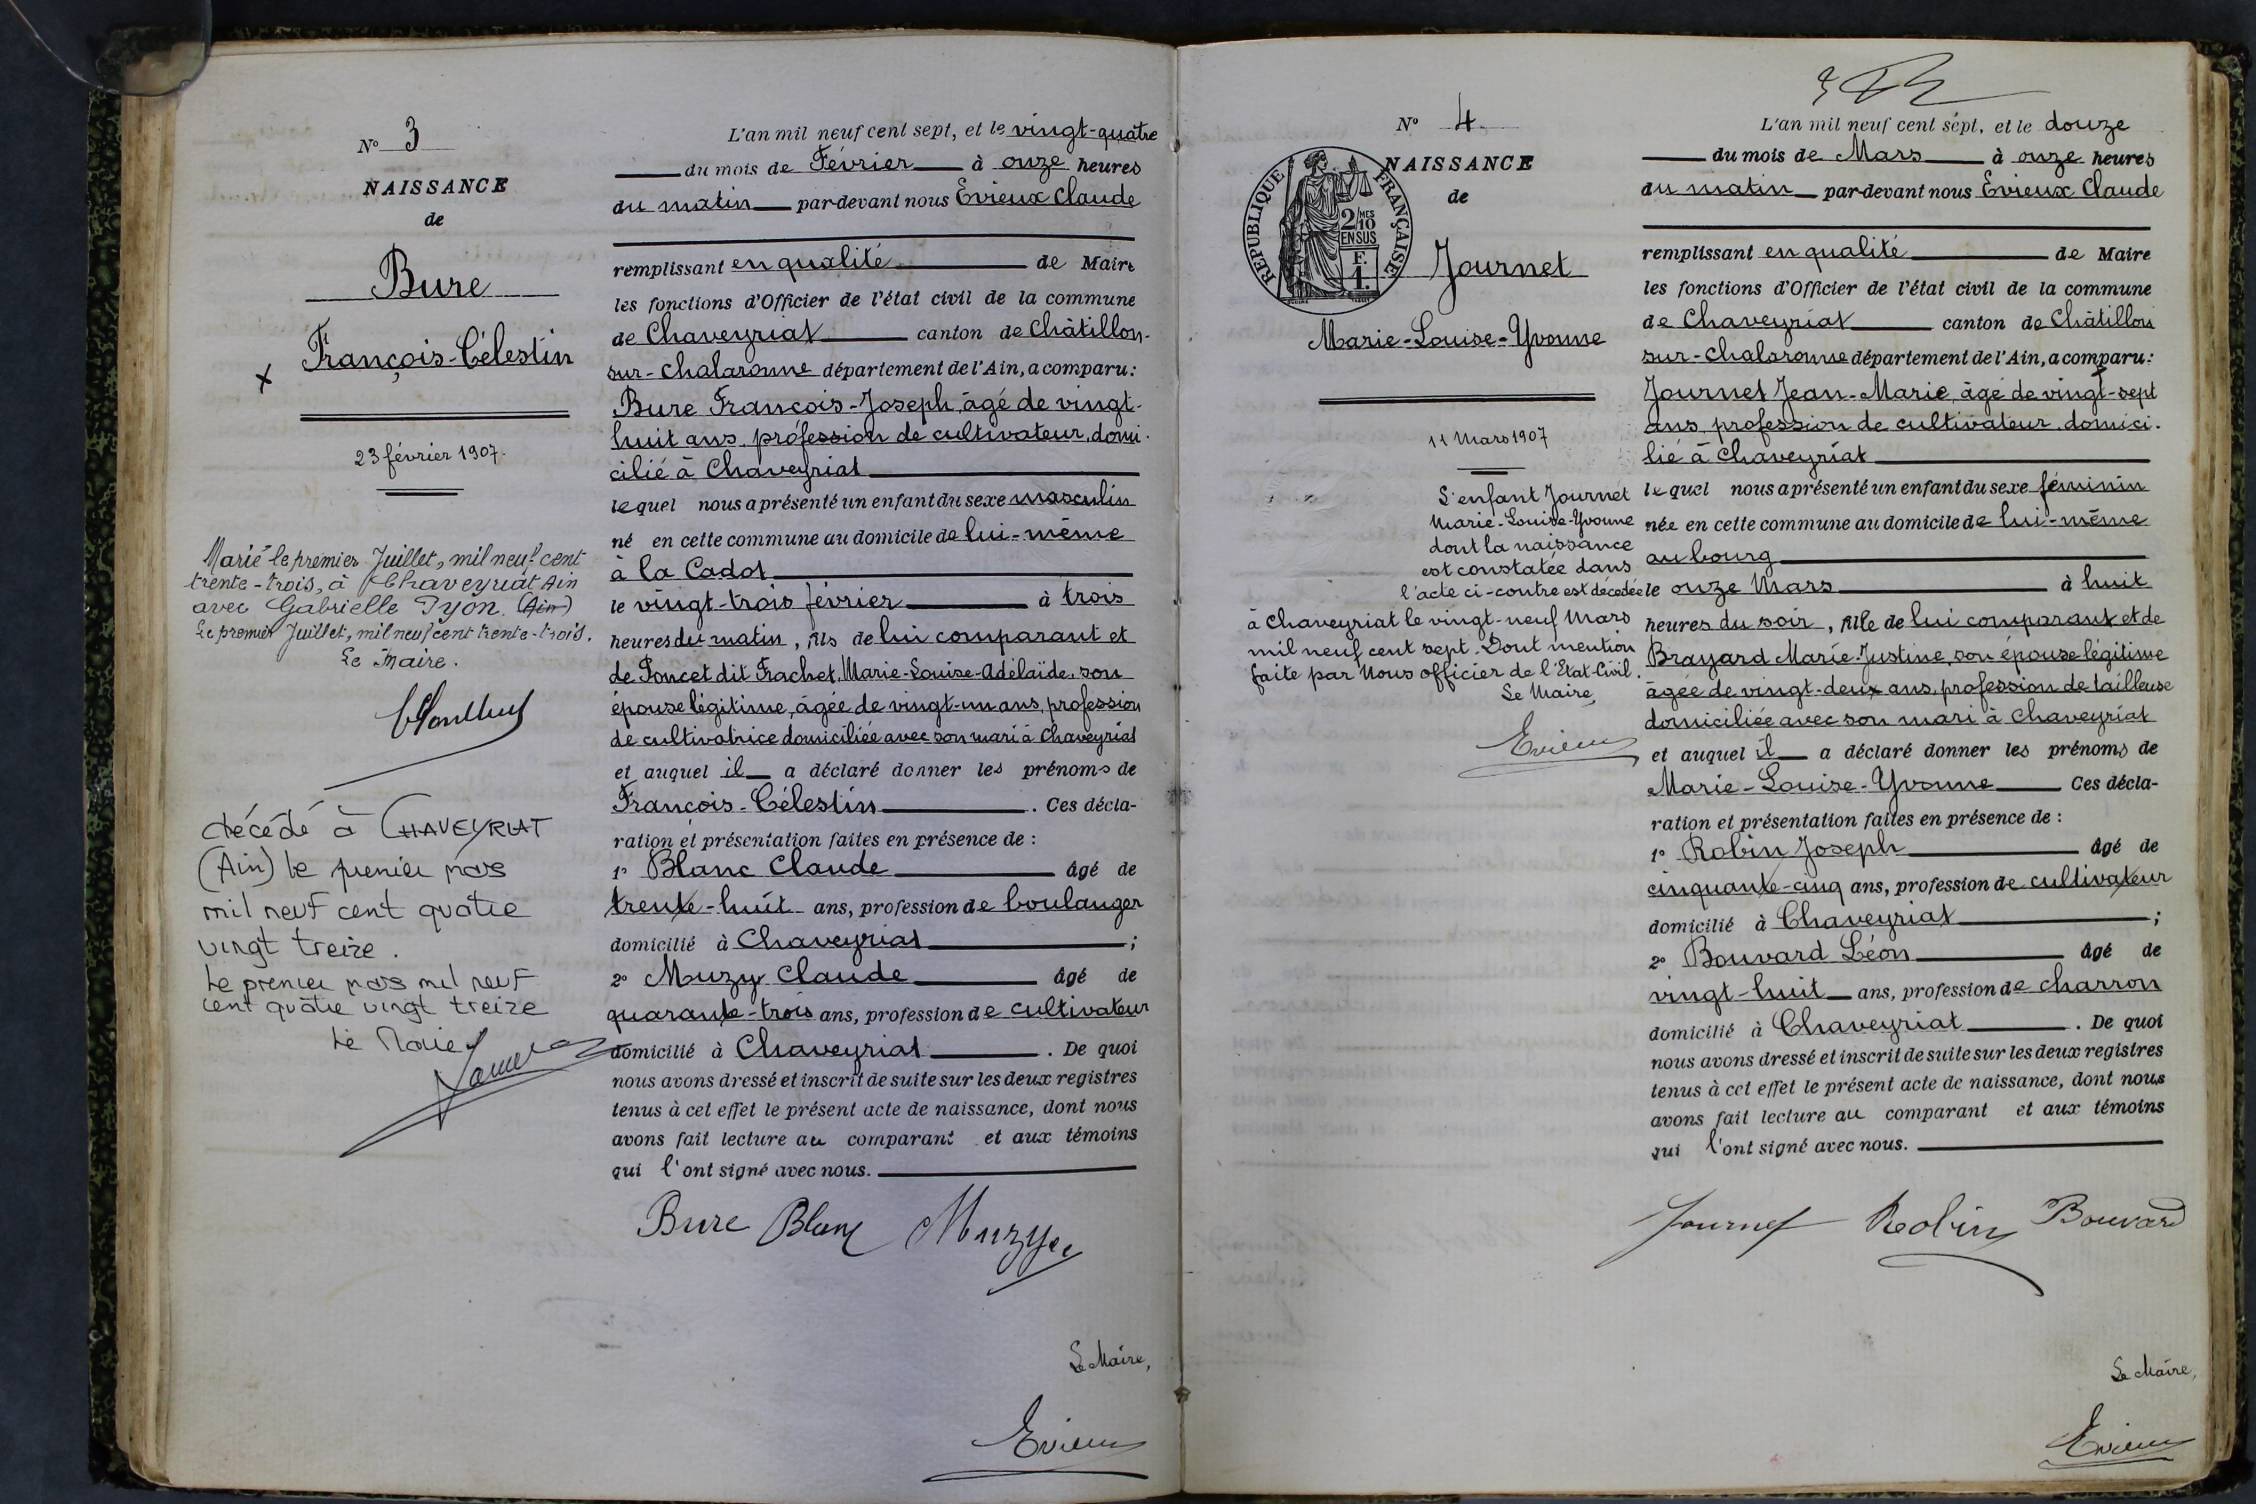 N° 3
NAISSANCE
de
Bure
François-Célestin
23 février 1907.
Marié le premier Juillet, mil neuf cent
trente-trois, à Chaveyriat Ain
avec Gabrielle Pyon (Ain)
Le premier Juillet, mil neuf cent trente-trois.
Le Maire.
décédé à CHAVEYRIAT
(Ain) le premier mars
mil neuf cent quatre
vingt treize.
Le premier mars mil neuf
cent quatre vingt treize
Le Maire
L'an mil neuf cent sept, et le vingt-quatre
du mois de Février à onze heures
du matin par-devant nous Evieux Claude
remplissant en qualité de Maire
les fonctions d'Officier de l'état civil de la commune
de Chaveyriat canton de Châtillon-
sur-Chalaronne département de l'Ain, a comparu:
Bure François-Joseph, âgé de vingt-
huit ans, profession de cultivateur, domi-
cilié à Chaveyriat
lequel nous a présenté un enfant du sexe masculin
né en cette commune au domicile de lui-même
à la Cadot
le vingt-trois février à trois
heures du matin, fils de lui comparant et
de Poncet dit Frachet, Marie-Louise-Adélaïde, son
épouse légitime, âgée de vingt-un ans, profession
de cultivatrice domiciliée avec son mari à Chaveyriat
et auquel il a déclaré donner les prénoms de
François-Célestin. Ces décla-
ration et présentation faites en présence de :
1° Blanc Claude âgé de
trente-huit ans, profession de boulanger
domicilié à Chaveyriat ;
2° Muzy Claude âgé de
quarante-trois ans, profession de cultivateur
domicilié à Chaveyriat. De quoi
nous avons dressé et inscrit de suite sur les deux registres
tenus à cet effet le présent acte de naissance, dont nous
avons fait lecture au comparant et aux témoins
qui l'ont signé avec nous.
Bure Blanc Muzy
Le Maire,
Evieux
N° 4.
NAISSANCE
de
RÉPUBLIQUE FRANÇAISE
2/10 MES
EN SUS
F.
1.
Journet
Marie-Louise-Yvonne
11 Mars 1907
L'enfant Journet
Marie-Louise-Yvonne
dont la naissance
est constatée dans
l'acte ci-contre est décédée
à Chaveyriat le vingt-neuf Mars
mil neuf cent sept. Dont mention
faite par Nous officier de l'Etat-Civil.
Le Maire,
Evieux
L'an mil neuf cent sept, et le douze
du mois de Mars à onze heures
du matin par-devant nous Evieux Claude
remplissant en qualité de Maire
les fonctions d'Officier de l'état civil de la commune
de Chaveyriat canton de Châtillon
sur-Chalaronne département de l'Ain, a comparu:
Journet Jean-Marie, âgé de vingt-sept
ans, profession de cultivateur, domici-
lié à Chaveyriat
lequel nous a présenté un enfant du sexe féminin
née en cette commune au domicile de lui-même
au bourg
le onze Mars à huit
heures du soir, fille de lui comparant et de
Brayard Marie-Justine, son épouse légitime
âgée de vingt-deux ans, profession de tailleuse
domiciliée avec son mari à Chaveyriat
et auquel il a déclaré donner les prénoms de
Marie-Louise-Yvonne Ces décla-
ration et présentation faites en présence de :
1° Robin Joseph âgé de
cinquante-cinq ans, profession de cultivateur
domicilié à Chaveyriat ;
2° Bouvard Léon âgé de
vingt-huit ans, profession de charron
domicilié à Chaveyriat. De quoi
nous avons dressé et inscrit de suite sur les deux registres
tenus à cet effet le présent acte de naissance, dont nous
avons fait lecture au comparant et aux témoins
qui l'ont signé avec nous.
Journet Robin Bouvard
Le Maire,
Evieux